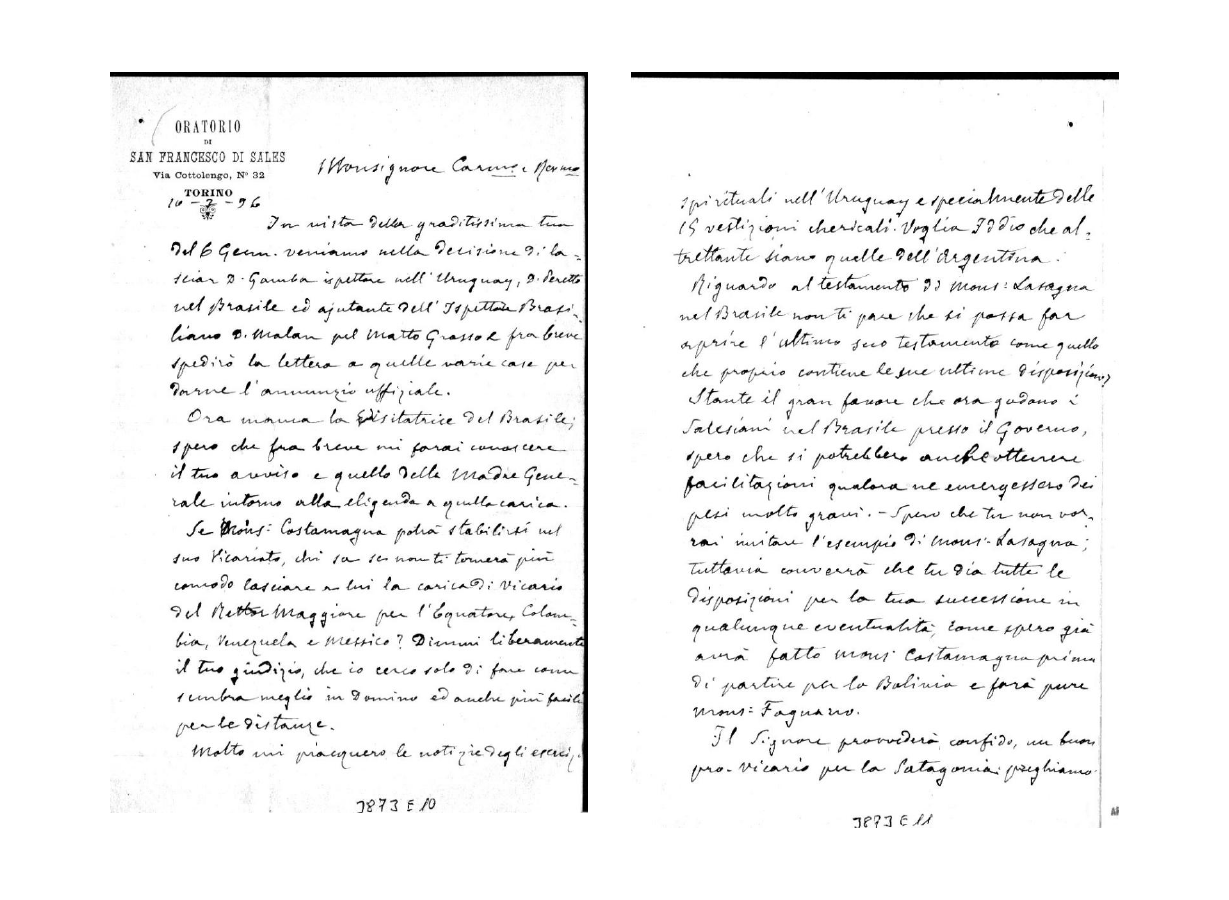 ORATORIO
DI
SAN FRANCESCO DI SALES
Via Cottolengo, Nº 32
TORINO
10-2-96
Monsignore Carmo e Revmo
In vista della graditissima tua
del 6 Genn. veniamo nella decisione di la-
sciar D. Gamba ispettore nell'Uruguay, D. Peretto
nel Brasile ed ajutante dell'Ispettore Brasi-
liano D. Malan pel Matto Grosso e fra breve
spedirò la lettera a quelle varie case per
darne l'annunzio uffiziale.
Ora manca la Visitatrice del Brasile;
spero che fra breve mi farai conoscere
il tuo avviso e quello della Madre Gene-
rale intorno alla eligenda a quella carica.
Se Mons: Costamagna potrà stabilirsi nel
suo Vicariato, chi sa se non ti tornerà più
comodo lasciare a lui la carica di Vicario
del Rettor Maggiore per l'Equatore, Colom-
bia, Venezuela e Messico? Dimmi liberamente
il tuo giudizio, che io cerco solo di fare come
sembra meglio in Domino ed anche più facile
per le distanze.
Molto mi piacquero le notizie degli eserciz.
J873 E 10
spirituali nell'Uruguay e specialmente delle
15 vestizioni chericali. Voglia Iddio che al-
trettante siano quelle dell'Argentina.
Riguardo al testamento di Mons: Lasagna
nel Brasile non ti pare che si possa far
aprire l'ultimo suo testamento come quello
che proprio contiene le sue ultime disposizioni?
Stante il gran favore che ora godono i
Salesiani nel Brasile presso il Governo,
spero che si potrebbero anche ottenere
facilitazioni qualora ne emergessero dei
pesi molto gravi. - Spero che tu non vor-
rai imitare l'esempio di Mons: Lasagna;
tuttavia converrà che tu dia tutte le
disposizioni per la tua successione in
qualunque eventualità, come spero già
avrà fatto Mons: Costamagna prima
di partire per la Bolivia e farà pure
Mons: Fagnano.
Il Signore provvederà, confido, un buon
pro-vicario per la Patagonia: preghiamo
J873 E 11